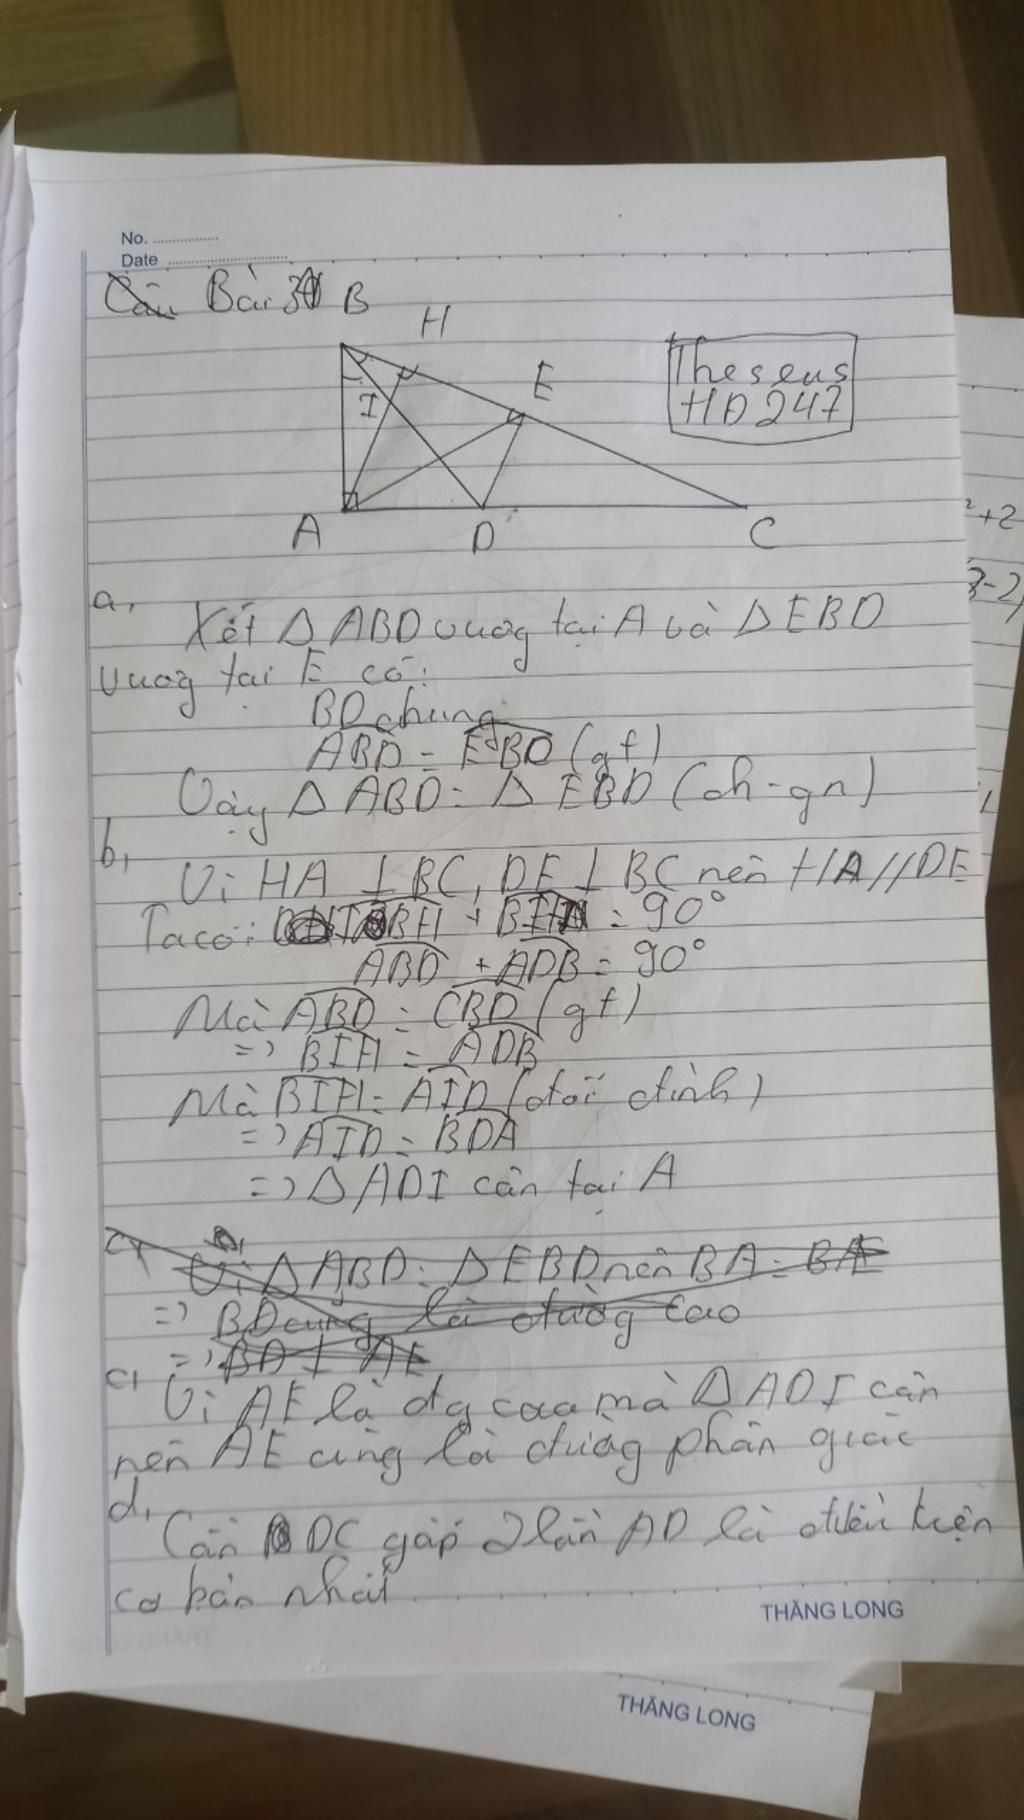 No.
Date
Bài 3
B
H
E
I
A
D
C
Theseus
HD247
²+2
3-2)
a,
Xét △ ABD vuog tại A và △ EBD
vuog tại E có:
BD chung
ABD = EBD (gt)
Vậy △ ABD = △ EBD (ch-gn)
b,
Vì HA ⊥ BC, DE ⊥ BC nên HA // DE
Ta có: IBH + BIH = 90°
ABD + ADB = 90°
Mà ABD = CBD (gt)
=> BIH = ADB
Mà BIH = AID (đối đỉnh)
=> AID = BDA
=> △ ADI cân tại A
c,
Vì △ ABD = △ EBD nên BA = BE
=> BD cũng là đường cao
=> BD ⊥ AE
c,
Vì AE là đg cao mà △ ADI cân
nên AE cũng là đường phân giác
d,
Cần DC gấp 2 lần AD là điều kiện
cơ bản nhất
THĂNG LONG
THĂNG LONG